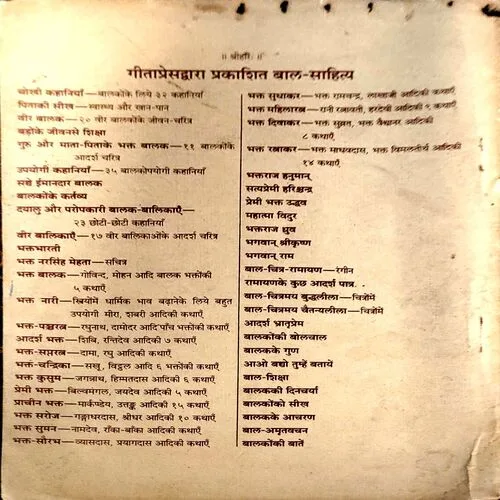 ॥ श्रीहरिः ॥
गीताप्रेसद्वारा प्रकाशित बाल-साहित्य
चोखी कहानियाँ—बालकोंके लिये ३२ कहानियाँ
पिताकी सीख—स्वास्थ्य और खान-पान
वीर बालक—२० वीर बालकोंके जीवन-चरित्र
बड़ोंके जीवनसे शिक्षा
गुरु और माता-पिताके भक्त बालक—११ बालकोंके
आदर्श चरित्र
उपयोगी कहानियाँ—३५ बालकोपयोगी कहानियाँ
सच्चे ईमानदार बालक
बालकोंके कर्तव्य
दयालु और परोपकारी बालक-बालिकाएँ—
२३ छोटी-छोटी कहानियाँ
वीर बालिकाएँ—१७ वीर बालिकाओंके आदर्श चरित्र
भक्तभारती
भक्त नरसिंह मेहता—सचित्र
भक्त बालक—गोविन्द, मोहन आदि बालक भक्तोंकी
५ कथाएँ
भक्त नारी—स्त्रियोंमें धार्मिक भाव बढ़ानेके लिये बहुत
उपयोगी मीरा, शबरी आदिकी कथाएँ
भक्त-पञ्चरत्न—रघुनाथ, दामोदर आदि पाँच भक्तोंकी कथाएँ
आदर्श भक्त—शिबि, रन्तिदेव आदिकी ७ कथाएँ
भक्त-सप्तरत्न—दामा, रघु आदिकी कथाएँ
भक्त-चन्द्रिका—सखू, विट्ठल आदि ६ भक्तोंकी कथाएँ
भक्त कुसुम—जगन्नाथ, हिम्मतदास आदिकी ६ कथाएँ
प्रेमी भक्त—बिल्वमंगल, जयदेव आदिकी ५ कथाएँ
प्राचीन भक्त—मार्कण्डेय, उत्तङ्क आदिकी १५ कथाएँ
भक्त सरोज—गङ्गाधरदास, श्रीधर आदिकी १० कथाएँ
भक्त सुमन—नामदेव, राँका-बाँका आदिकी कथाएँ
भक्त-सौरभ—व्यासदास, प्रयागदास आदिकी कथाएँ
भक्त सुधाकर—भक्त रामचन्द्र, लाखाजी आदिकी कथाएँ
भक्त महिलारत्न—रानी रत्नावती, हरदेवी आदिकी ९ कथाएँ
भक्त दिवाकर—भक्त सुव्रत, भक्त वैश्वानर आदिकी
८ कथाएँ
भक्त रत्नाकर—भक्त माधवदास, भक्त विमलतीर्थ आदिकी
१४ कथाएँ
भक्तराज हनुमान्
सत्यप्रेमी हरिश्चन्द्र
प्रेमी भक्त उद्धव
महात्मा विदुर
भक्तराज ध्रुव
भगवान् श्रीकृष्ण
भगवान् राम
बाल-चित्र-रामायण—रंगीन
रामायणके कुछ आदर्श पात्र
बाल-चित्रमय बुद्धलीला—चित्रोंमें
बाल-चित्रमय चैतन्यलीला—चित्रोंमें
आदर्श भ्रातृप्रेम
बालकोंकी बोलचाल
बालकके गुण
आओ बच्चो तुम्हें बतायें
बाल-शिक्षा
बालककी दिनचर्या
बालकोंको सीख
बालकके आचरण
बाल-अमृतवचन
बालकोंकी बातें